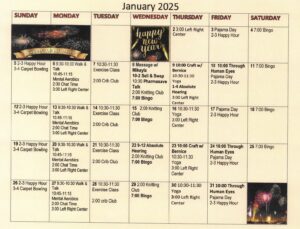 January 2025
SUNDAY MONDAY TUESDAY WEDNESDAY THURSDAY FRIDAY SATURDAY
happy
new
year
2 3:00 Left Right
Center
3 Pajama Day
2-3 Happy Hour
4 7:00 Bingo
5 2-3 Happy Hour
3-4 Carpet Bowling
6 9:30-10:30 Walk &
Talk
10:45-11:15
Mental Aerobics
2:00 Chat Time
3:00 Left Right Center
7 10:30-11:30
Exercise Class
2:00 Crib Club
8 Massage w/
Mikayla
10-2 Sell & Swap
12:30 Pharmasave
Talk
2:00 Knitting Club
7:00 Bingo
9 10:00 Craft w/
Bernice
10:30-11:30
Yoga
1-4 Absolute
Hearing
3:00 Left Right Center
10 10:00 Through
Human Eyes
Pajama Day
2-3 Happy Hour
11 7:00 Bingo
12 2-3 Happy Hour
3-4 Carpet Bowling
13 9:30-10:30 Walk &
Talk
10:45-11:15
Mental Aerobics
2:00 Chat Time
3:00 Left Right Center
14 10:30-11:30
Exercise Class
2:00 Crib Club
15
2:00 Knitting Club
7:00 Bingo
16 10:30-11:30
Yoga
3:00 Left Right
Center
17 Pajama Day
2-3 Happy Hour
18 7:00 Bingo
19 2-3 Happy Hour
3-4 Carpet Bowling
20 9:30-10:30 Walk &
Talk
10:45-11:15
Mental Aerobics
2:00 Chat Time
3:00 Left Right Center
21 10:30-11:30
Exercise Class
2:00 Crib Club
22 9-12 Absolute
Hearing
2:00 Knitting Club
7:00 Bingo
23 10:00 Craft w/
Bernice
10:30-11:30
Yoga
3:00 Left Right Center
24 10:00 Through
Human Eyes
Pajama Day
2-3 Happy Hour
25 7:00 Bingo
26 2-3 Happy Hour
3-4 Carpet Bowling
27 9:30-10:30 Walk &
Talk
10:45-11:15
Mental Aerobics
2:00 Chat Time
3:00 Left Right Center
28 10:30-11:30
Exercise Class
2:00 crib Club
29
2:00 Knitting Club
7:00 Bingo
30 10:30-11:30
Yoga
3:00 Left Right
Center
31 10:00 Through
Human Eyes
Pajama Day
2-3 Happy Hour